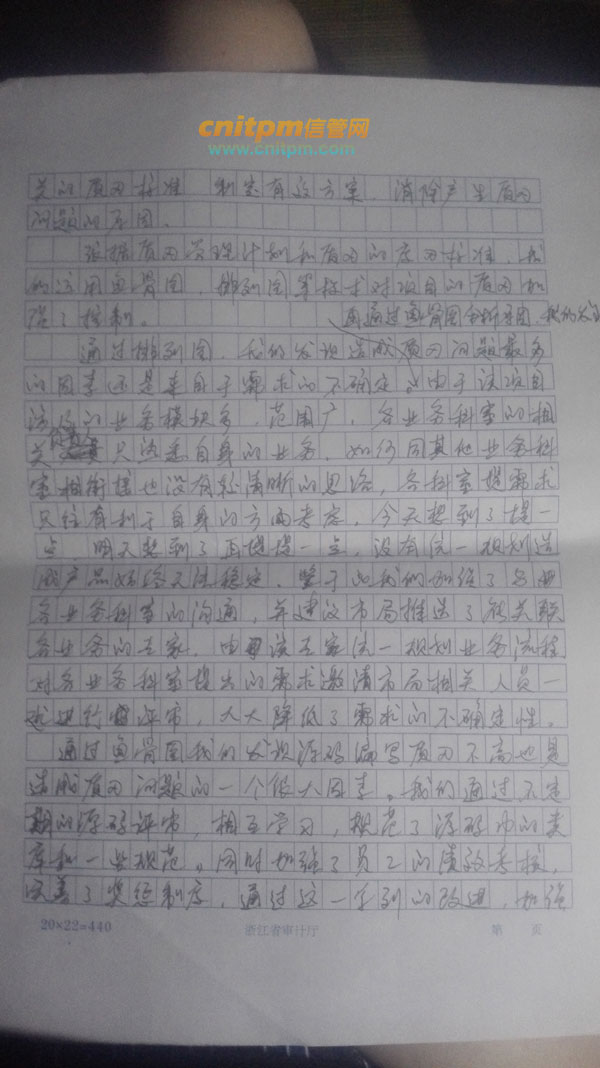 cnitpm信管网
www.cnitpm.com
关的质量标准，制定有效方案，消除产生质量
问题的原因。
依据质量管理计划和质量的度量标准，我
们运用鱼骨图，排列图等技术对项目的质量加
强了控制。
再通过鱼骨图分析原因，我们发
通过排列图，我们发现造成质量问题最多
的因素还是来自于需求的不确定。由于该项目
涉及的业务模块多，范围广，各业务科室的相
关 只熟悉自身的业务，如何同其他业务科
室相衔接也没有较清晰的思路，各科室提需求
只往有利于自身的方面考虑，今天想到了提一
点，明天想到了再提提一点，没有统一规划造
成产品始终无法稳定，鉴于此我们加强了与
各业务科室的沟通，并建议市局推选了 关联
各业务的专家，由 该专家统一规划业务流程
对各业务科室提出的需求邀请市局相关人员一
起进行 评审，大大降低了需求的不确定性。
通过鱼骨图我们发现源码编写质量不高也是
造成质量问题的一个很大因素。我们通过不定
期的源码评审，相互学习，规范了源码中的类
库和一些规范。同时加强了员工的绩效考核，
完善了奖惩制度，通过这一系列的改进，加强
20×22=440 浙江省审计厅 第 页